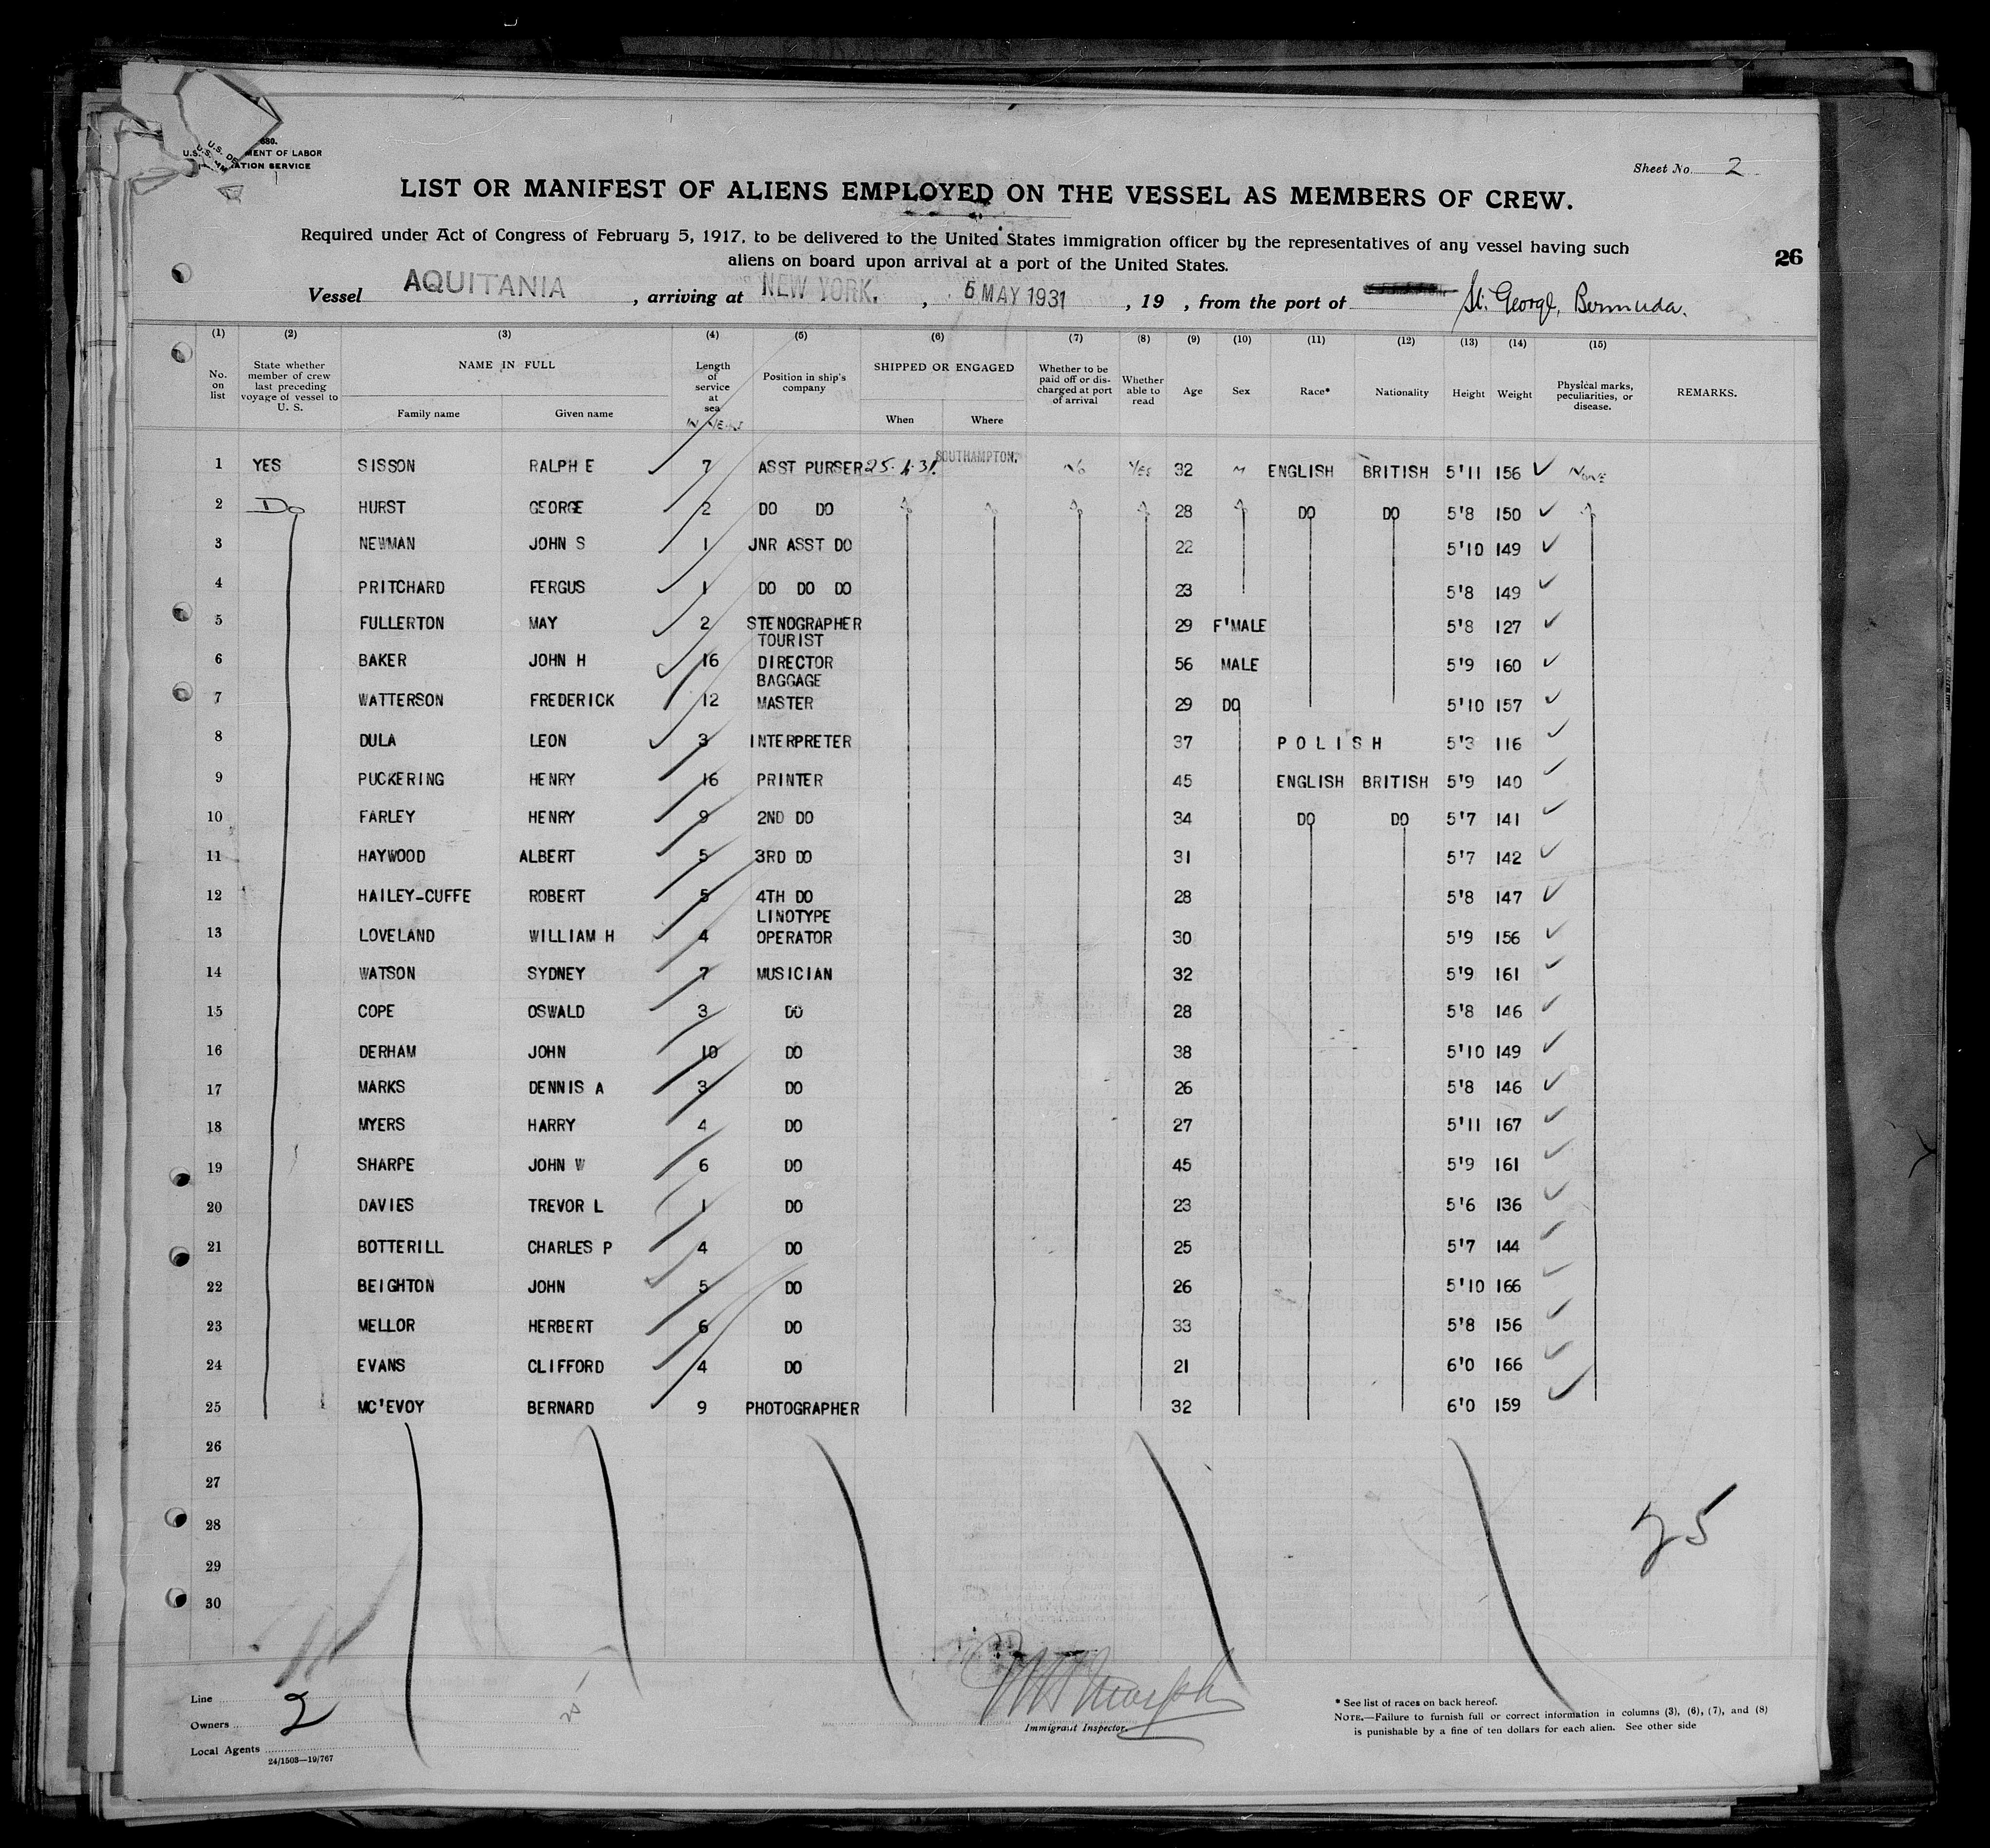 680.
U.S. DEPARTMENT OF LABOR
IMMIGRATION SERVICE
Sheet No. 2
LIST OR MANIFEST OF ALIENS EMPLOYED ON THE VESSEL AS MEMBERS OF CREW.
Required under Act of Congress of February 5, 1917, to be delivered to the United States immigration officer by the representatives of any vessel having such
aliens on board upon arrival at a port of the United States.
26
Vessel AQUITANIA, arriving at NEW YORK., 6 MAY 1931, 19 , from the port of St. George, Bermuda.
(1) (2) (3) (4) (5) (6) (7) (8) (9) (10) (11) (12) (13) (14) (15)
No. on list
State whether member of crew last preceding voyage of vessel to U. S.
NAME IN FULL
Family name
Given name
Length of service at sea
IN YEARS
Position in ship's company
SHIPPED OR ENGAGED
When
Where
Whether to be paid off or discharged at port of arrival
Whether able to read
Age
Sex
Race*
Nationality
Height
Weight
Physical marks, peculiarities, or disease.
REMARKS.
1 YES SISSON RALPH E 7 ASST PURSER 25.4.31. SOUTHAMPTON. No Yes 32 M ENGLISH BRITISH 5'11 156 None
2 Do HURST GEORGE 2 DO DO 28 DO DO 5'8 150
3 NEWMAN JOHN S 1 JNR ASST DO 22 5'10 149
4 PRITCHARD FERGUS 1 DO DO DO 23 5'8 149
5 FULLERTON MAY 2 STENOGRAPHER 29 F'MALE 5'8 127
6 BAKER JOHN H 16 TOURIST DIRECTOR 56 MALE 5'9 160
7 WATTERSON FREDERICK 12 BAGGAGE MASTER 29 DO 5'10 157
8 DULA LEON 3 INTERPRETER 37 POLISH 5'3 116
9 PUCKERING HENRY 16 PRINTER 45 ENGLISH BRITISH 5'9 140
10 FARLEY HENRY 9 2ND DO 34 DO DO 5'7 141
11 HAYWOOD ALBERT 5 3RD DO 31 5'7 142
12 HAILEY-CUFFE ROBERT 5 4TH DO 28 5'8 147
13 LOVELAND WILLIAM H 4 LINOTYPE OPERATOR 30 5'9 156
14 WATSON SYDNEY 7 MUSICIAN 32 5'9 161
15 COPE OSWALD 3 DO 28 5'8 146
16 DERHAM JOHN 10 DO 38 5'10 149
17 MARKS DENNIS A 3 DO 26 5'8 146
18 MYERS HARRY 4 DO 27 5'11 167
19 SHARPE JOHN W 6 DO 45 5'9 161
20 DAVIES TREVOR L 1 DO 23 5'6 136
21 BOTTERILL CHARLES P 4 DO 25 5'7 144
22 BEIGHTON JOHN 5 DO 26 5'10 166
23 MELLOR HERBERT 6 DO 33 5'8 156
24 EVANS CLIFFORD 4 DO 21 6'0 166
25 MC'EVOY BERNARD 9 PHOTOGRAPHER 32 6'0 159
26
27
28
29
30
25
Line
Owners 2
Local Agents
24/1503—19/767
Immigrant Inspector.
* See list of races on back hereof.
NOTE.—Failure to furnish full or correct information in columns (3), (6), (7), and (8)
is punishable by a fine of ten dollars for each alien. See other side